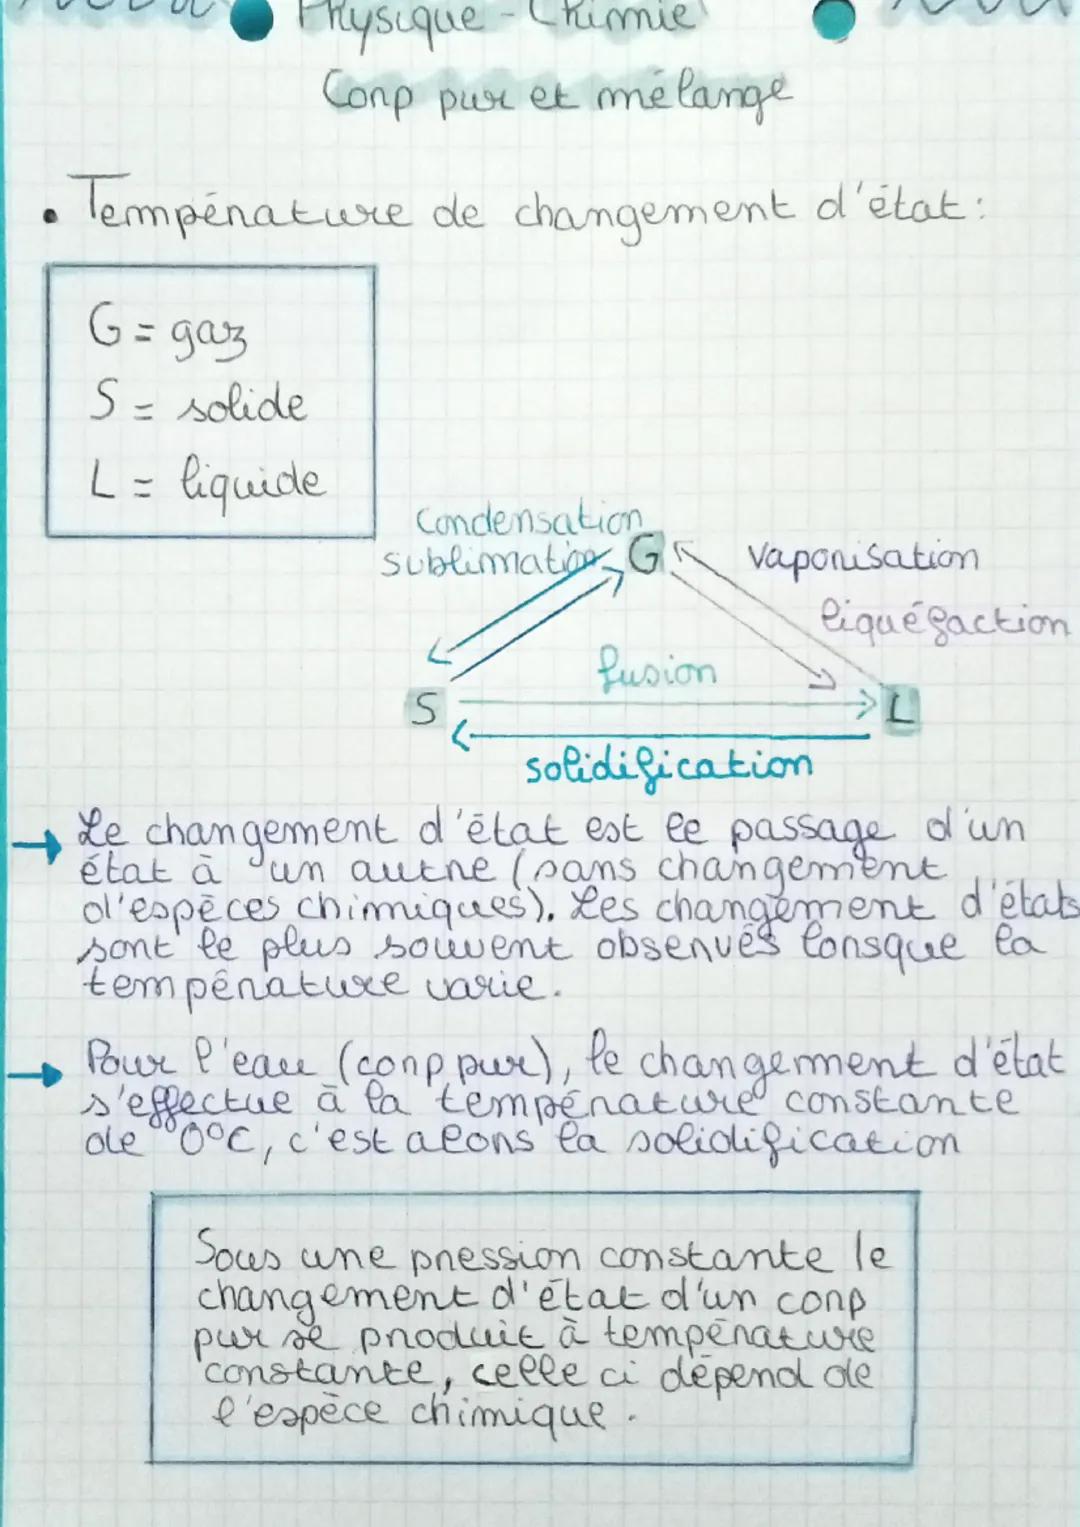 Physique - Chimie
Corp pur et mélange
• Température de changement d'état :
G = gaz
S = solide
L = liquide
Condensation
sublimation
G
Vaporisation
liquéfaction
fusion
S
L
solidification
→ Le changement d'état est le passage d'un
état à un autre (sans changement
d'espèces chimiques). Les changement d'états
sont le plus souvent observés lorsque la
température varie.
→ Pour l'eau (corp pur), le changement d'état
s'effectue à la température constante
de 0°C, c'est alors la solidification
Sous une pression constante le
changement d'état d'un corp
pur se produit à température
constante, celle ci dépend de
l'espèce chimique.